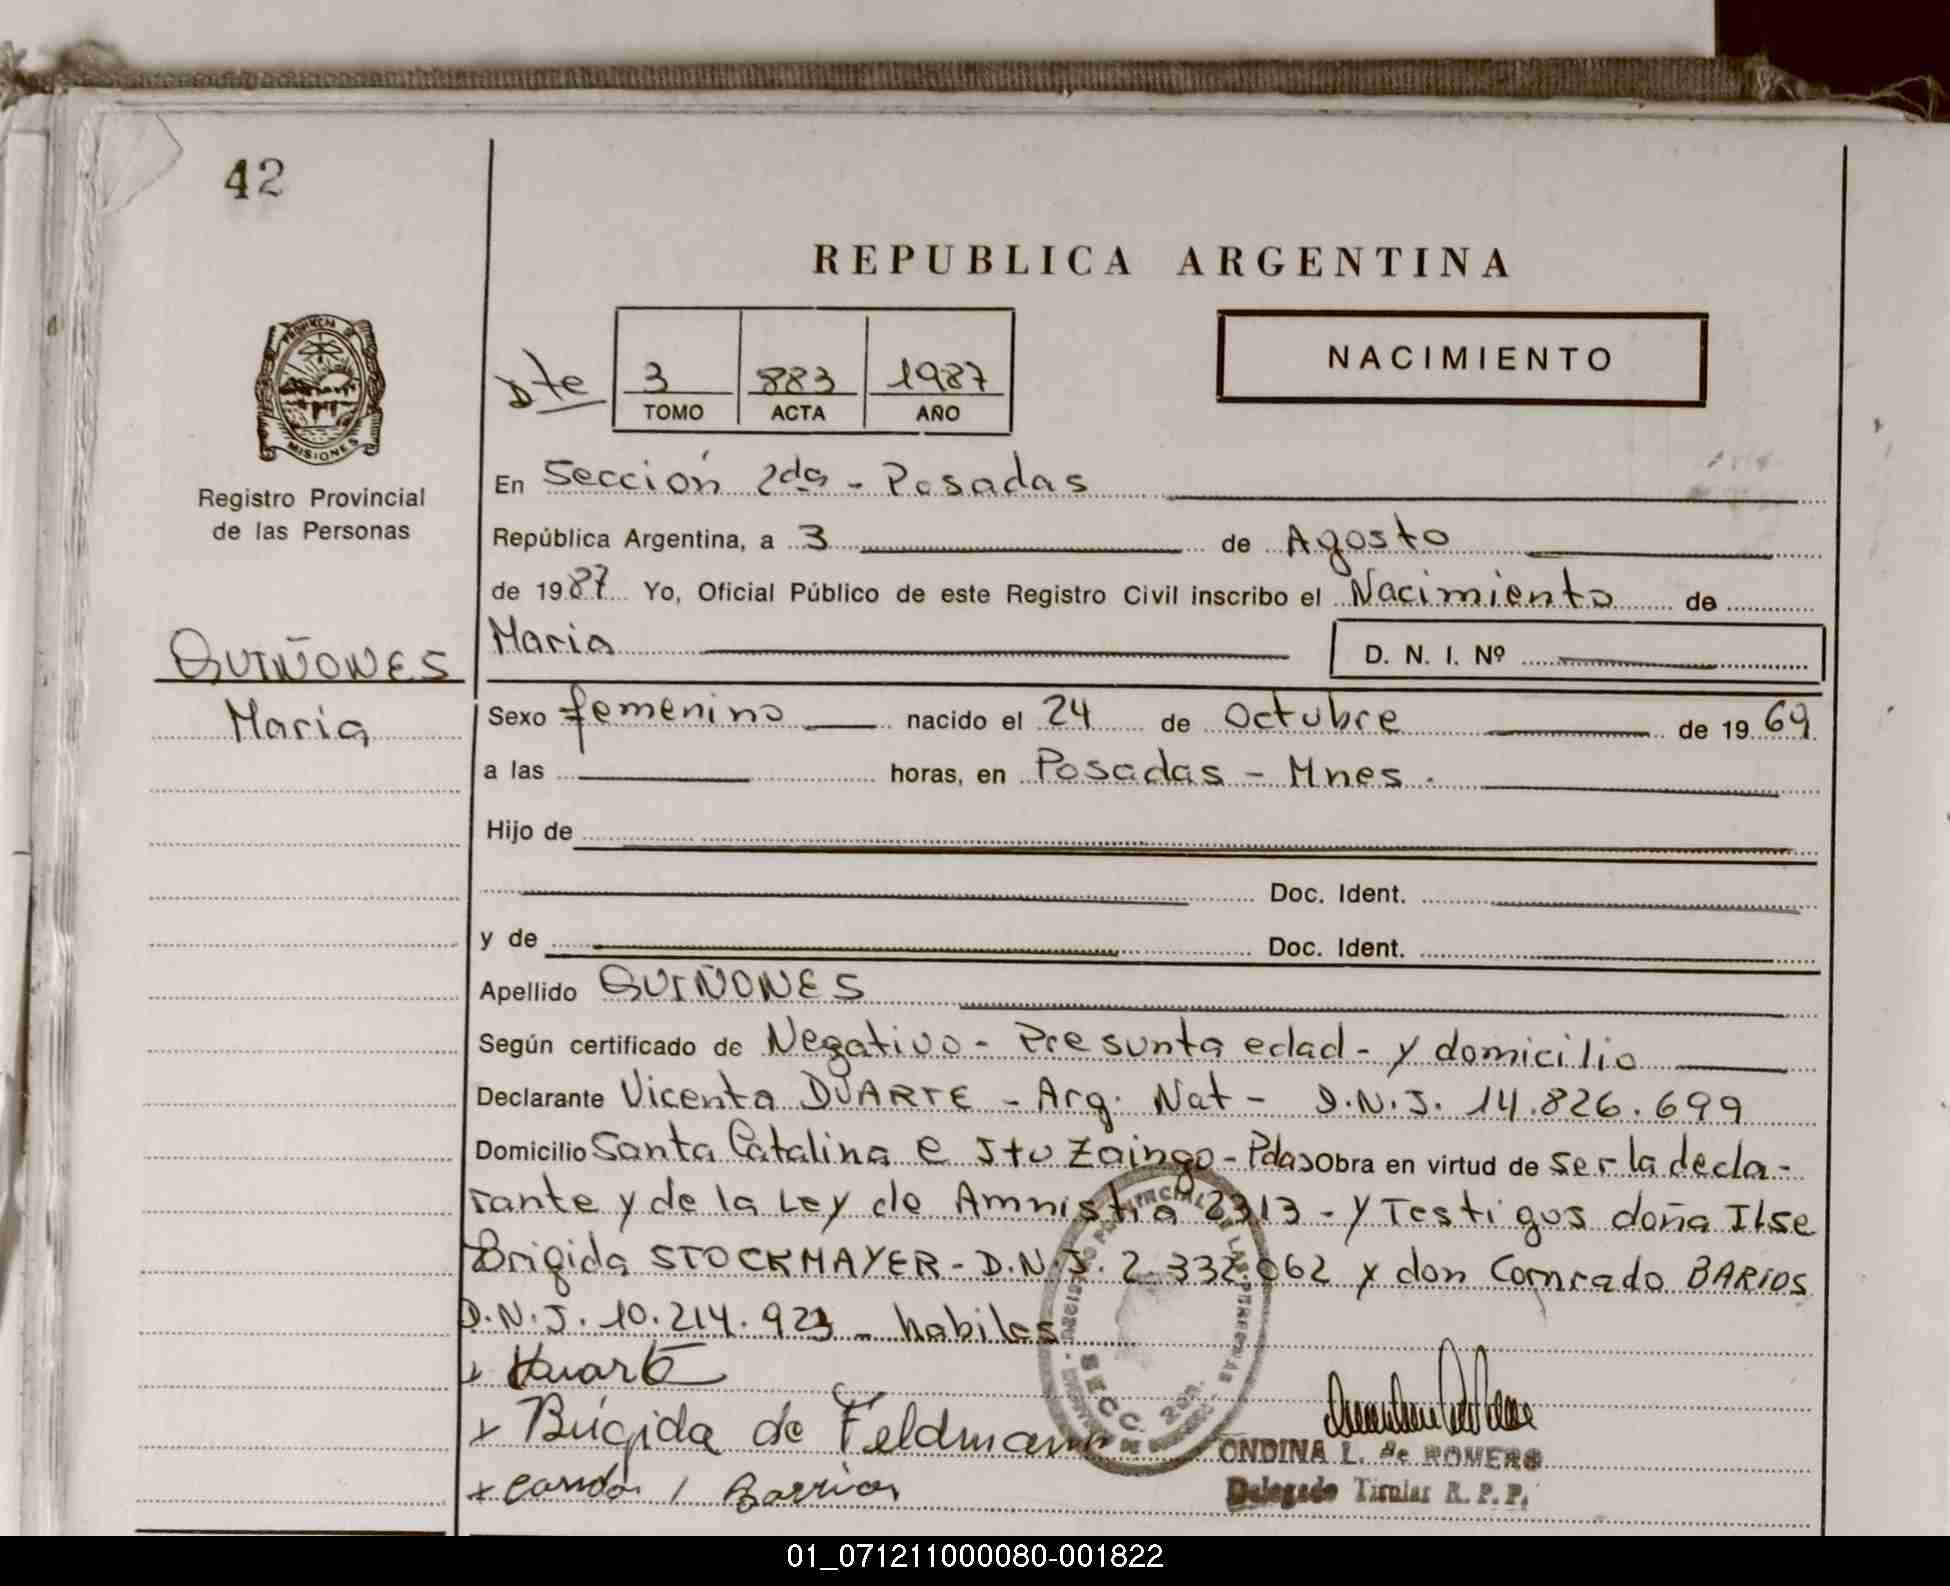 42
REPUBLICA ARGENTINA
PROVINCIA DE
MISIONES
Registro Provincial
de las Personas
Dte
3 883 1987
TOMO ACTA AÑO
NACIMIENTO
En Sección 2da - Posadas
República Argentina, a 3 de Agosto
de 1987 Yo, Oficial Público de este Registro Civil inscribo el Nacimiento de
Maria D. N. I. Nº
QUIÑONES
Maria
Sexo femenino nacido el 24 de Octubre de 1969
a las horas, en Posadas - Mnes.
Hijo de
Doc. Ident.
y de Doc. Ident.
Apellido QUIÑONES
Según certificado de Negativo - Presunta edad - y domicilio
Declarante Vicenta DUARTE - Arg. Nat - D.N.I. 14.826.699
Domicilio Santa Catalina e Ituzaingo - Pdas Obra en virtud de ser la decla-
rante y de la Ley de Amnistia 2313 - y Testigos doña Ilse
Brigida STOCKMAYER - D.N.I. 2.332.062 y don Comrado BARIOS
D.N.I. 10.214.923 - habiles
x Duarte
x Brigida de Feldmann
x Barrios
SECC. 2da.
ONDINA L. de ROMERO
Delegado Titular R. P. P.
01_071211000080-001822